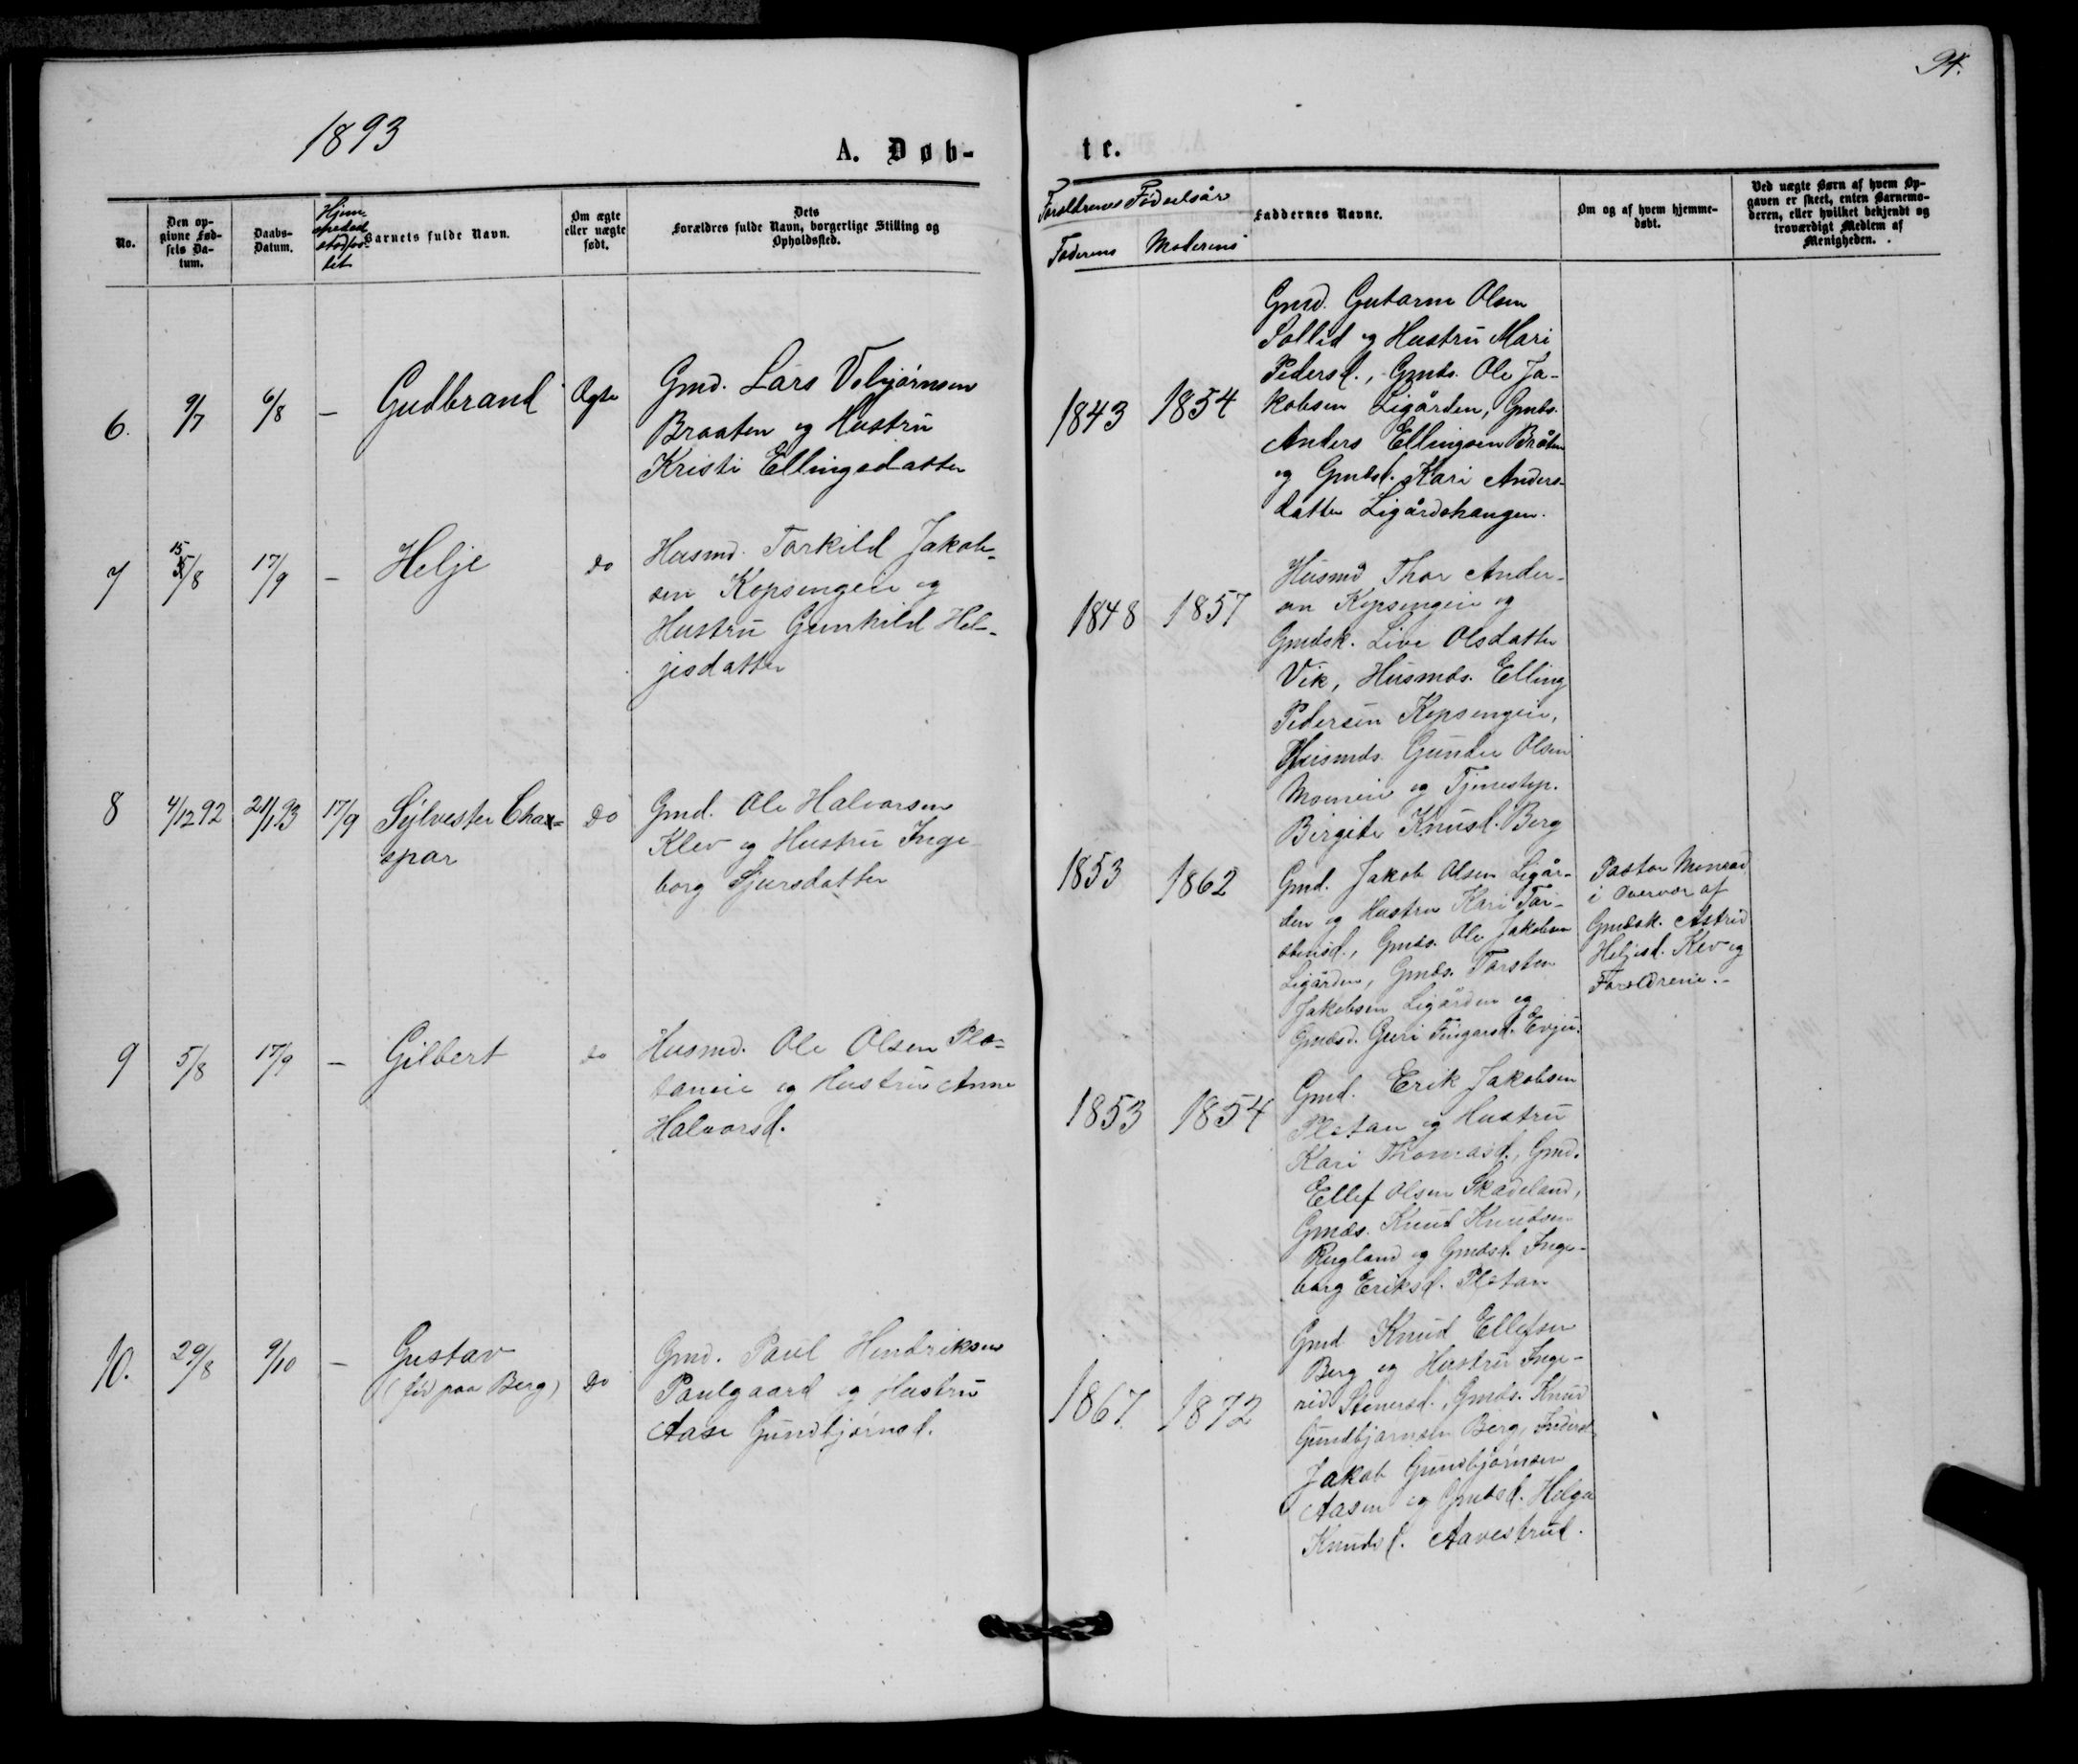 94.
1893
A. Døb-
te.
No.
Den op-
givne Fød-
sels Da-
tum.
Daabs-
Datum.
Barnets fulde Navn.
Om ægte
eller uægte
født.
Dets
Forældres fulde Navn, borgerlige Stilling og
Opholdssted.
Forældrenes Fødselsår
Faderens Moderens
Faddernes Navne.
Om og af hvem hjemme-
døbt.
Ved uægte Børn af hvem Op-
gaven er skeet, enten Barnemo-
deren, eller hvilket bekjendt og
troværdigt Medlem af
Menigheden.
6. 9/7 6/8 – Gudbrand Ægte
Gmd. Lars Vebjørnsen
Braaten og Hustru
Kristi Ellingsdatter
1843 1854
Gmd. Gutorm Olsen
Sollid og Hustru Mari
Pedersd., Gmds. Ole Ja-
kobsen Ligården, Gmds.
Anders Ellingsen Bråten
og Gmdsd. Kari Anders-
datter Ligårdshaugen.
7 15/8 17/9 – Helje do
Husmd. Torkild Jakob-
sen Kopsengeie og
Hustru Gunhild Hel-
jesdatter
1848 1857
Husmd Thor Ander-
sen Kopsengeie og
Gmdsk. Live Olsdatter
Vik, Husmds. Elling
Pedersen Kopsengeie,
Husmds. Gunder Olsen
Moeneie og Tjenestep.
Birgite Knusd. Berg
8 4/12 92 21/1 93 17/9 Sylvester Cha-
spar
Do
Gmd. Ole Halvorsen
Klev og Hustru Inge-
borg Sjursdatter
1853 1862
Gmd. Jakob Olsen Ligår-
den og Hustru Kari Tor-
stensd., Gmds. Ole Jakobsen
Ligården, Gmds. Torsten
Jakobsen Ligården og
Gmdsd. Guri Evju.
Pastor Monrad
i Overvær af
Gmdsk. Astrid
Heljesd. Klev og
Forældrene.-
9 5/8 17/9 – Gilbert do
Husmd. Ole Olsen Plo-
taneie og Hustru Anne
Halvorsd.
1853 1854
Gmd. Erik Jakobsen
Plotan og Hustru
Kari Thomasd., Gmd.
Ellef Olsen Skadeland,
Gmds. Knud Knudsen
Rugland og Gmdsd. Inge-
borg Eriksd. Plotan
10. 29/8 9/10 – Gustav
(fød paa Berg) Do
Gmd. Paul Hendriksen
Paulgaard og Hustru
Aase Gundbjørnsd.
1867. 1872
Gmd Knud Ellefsen
Berg og Hustru Inge-
rid Stenersd., Gmds. Knud
Gundbjørnsen Berg,
Jakob Gundbjørnsen
Aasen og Gmdsd. Helga
Knudsd. Aavestrud.